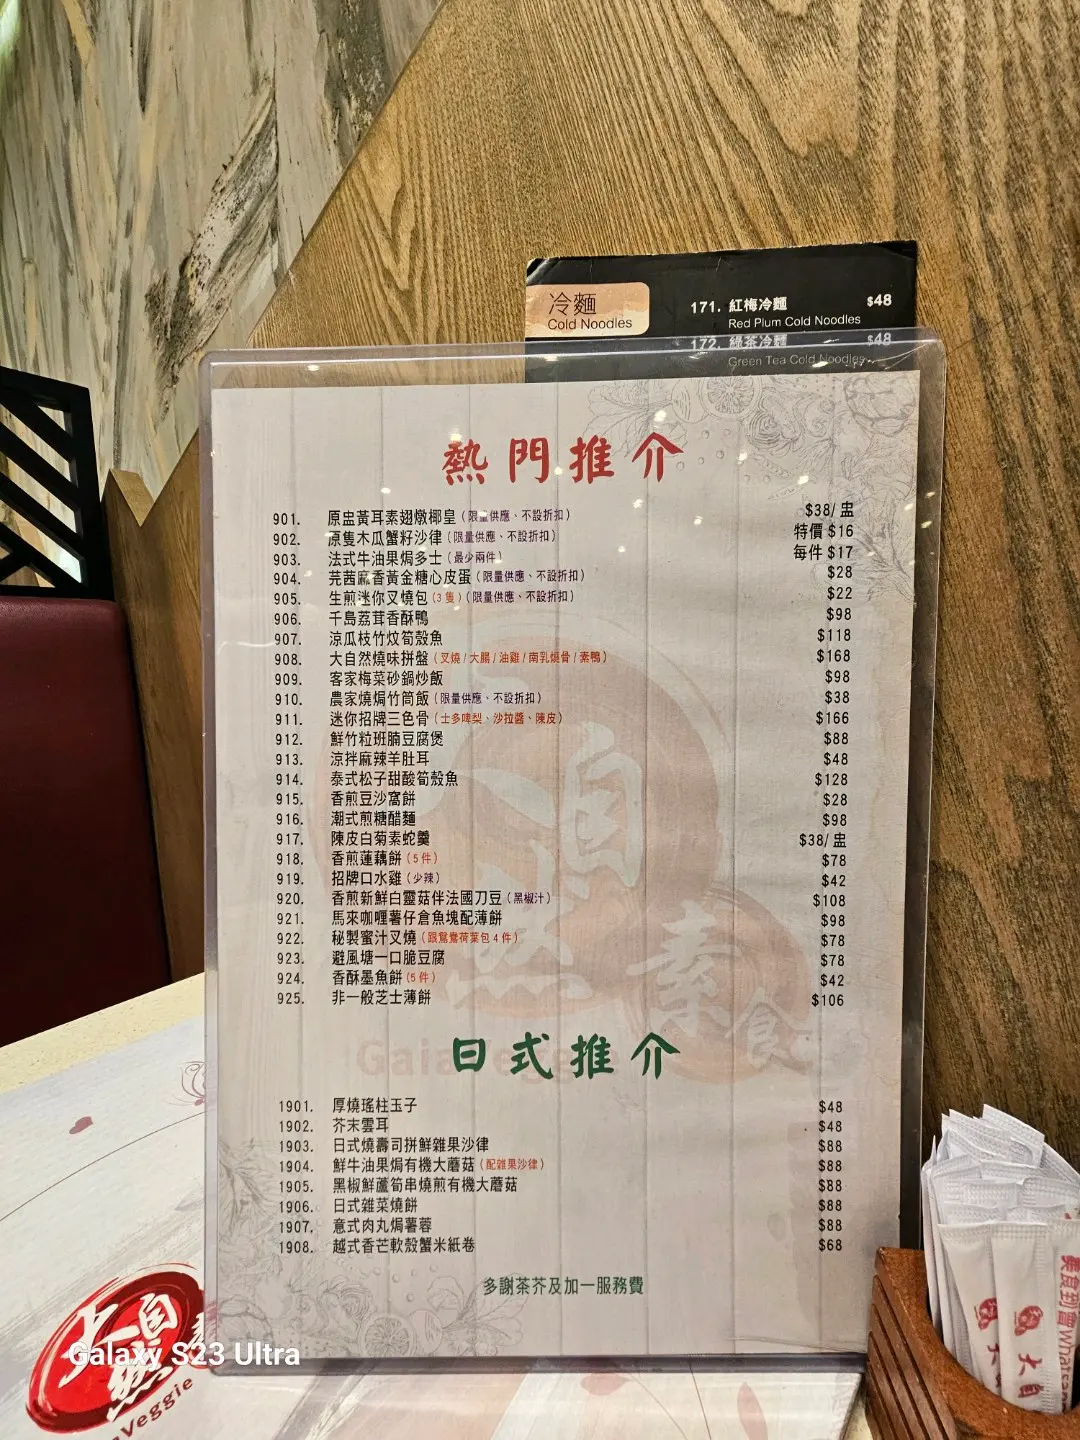 冷麵
Cold Noodles
171. 紅梅冷麵 $48
Red Plum Cold Noodles
172. 綠茶冷麵 $48
Green Tea Cold Noodles
熱門推介
901. 原盅黃耳素翅燉椰皇(限量供應、不設折扣) $38/盅
902. 原隻木瓜蟹籽沙律(限量供應、不設折扣) 特價 $16
903. 法式牛油果焗多士(最少兩件) 每件 $17
904. 芫茜麻香黃金糖心皮蛋(限量供應、不設折扣) $28
905. 生煎迷你叉燒包(3隻)(限量供應、不設折扣) $22
906. 千島荔茸香酥鴨 $98
907. 涼瓜枝竹炆筍殼魚 $118
908. 大自然燒味拼盤(叉燒/大腸/油雞/南乳燒骨/素鴨) $168
909. 客家梅菜砂鍋炒飯 $98
910. 農家燒焗竹筒飯(限量供應、不設折扣) $38
911. 迷你招牌三色骨(士多啤梨、沙拉醬、陳皮) $166
912. 鮮竹粒班腩豆腐煲 $88
913. 涼拌麻辣羊肚耳 $48
914. 泰式松子甜酸筍殼魚 $128
915. 香煎豆沙窩餅 $28
916. 潮式煎糖醋麵 $98
917. 陳皮白菊素蛇羹 $38/盅
918. 香煎蓮藕餅(5件) $78
919. 招牌口水雞(少辣) $42
920. 香煎新鮮白靈菇伴法國刀豆(黑椒汁) $108
921. 馬來咖喱薯仔倉魚塊配薄餅 $98
922. 秘製蜜汁叉燒(跟鴛鴦荷葉包4件) $78
923. 避風塘一口脆豆腐 $78
924. 香酥墨魚餅(5件) $42
925. 非一般芝士薄餅 $106
大自然素食
Gaia Veggie
日式推介
1901. 厚燒瑤柱玉子 $48
1902. 芥末雲耳 $48
1903. 日式燒壽司拼鮮雜果沙律 $88
1904. 鮮牛油果焗有機大蘑菇(配雜果沙律) $88
1905. 黑椒鮮蘆筍串燒煎有機大蘑菇 $88
1906. 日式雜菜燒餅 $88
1907. 意式肉丸焗薯蓉 $88
1908. 越式香芒軟殼蟹米紙卷 $68
多謝茶芥及加一服務費
大自然素
Veggie
Galaxy S23 Ultra
大自
美食到會Whatsa